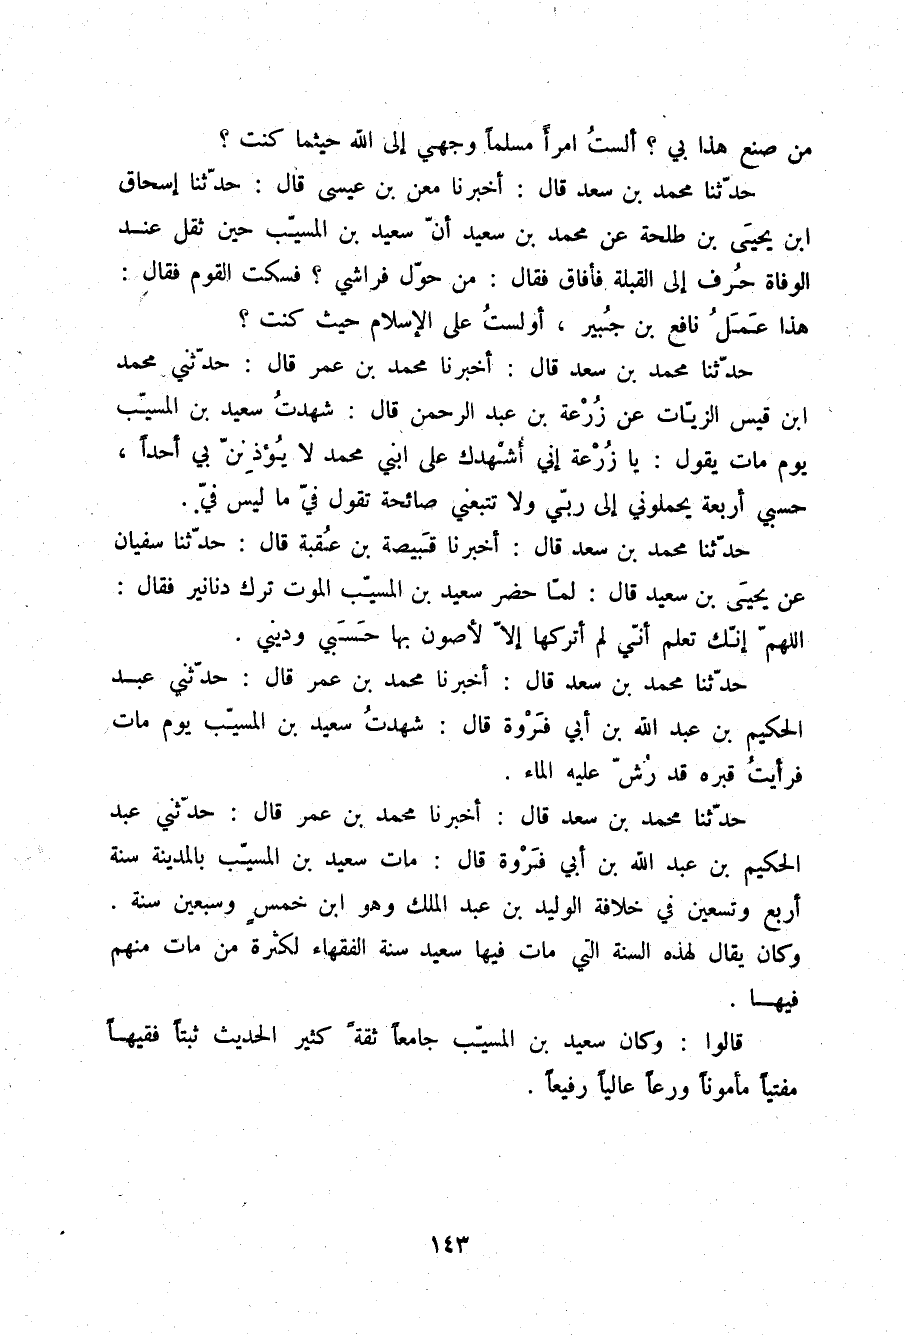 من صنع هذا بي ؟ ألستُ امرأً مسلماً وجهي إلى الله حيثما كنت ؟
حدّثنا محمد بن سعد قال : أخبرنا معن بن عيسى قال : حدّثنا إسحاق
ابن يحيَى بن طلحة عن محمد بن سعيد أنّ سعيد بن المسيّب حين ثقل عنــد
الوفاة حُرف إلى القبلة فأفاق فقال : من حوّل فراشي ؟ فسكت القوم فقال :
هذا عَمَلُ نافع بن جُبير ، أولستُ على الإسلام حيث كنت ؟
حدّثنا محمد بن سعد قال : أخبرنا محمد بن عمر قال : حدّثني محمد
ابن قيس الزيّات عن زُرْعة بن عبد الرحمن قال : شهدتُ سعيد بن المسيّب
يوم مات يقول : يا زُرْعة إني أُشْهدك على ابني محمد لا يُؤذِننّ بي أحداً ،
حسبي أربعة يحملوني إلى ربّي ولا تتبعني صائحة تقول فيّ ما ليس فيّ .
حدّثنا محمد بن سعد قال : أخبرنا قَبيصة بن عُقبة قال : حدّثنا سفيان
عن يحيَى بن سعيد قال : لمّا حضر سعيد بن المسيّب الموت ترك دنانير فقال :
اللهمّ إنّك تعلم أنّي لم أتركها إلاّ لأصون بها حَسَبي وديني .
حدّثنا محمد بن سعد قال : أخبرنا محمد بن عمر قال : حدّثني عبــد
الحكيم بن عبد الله بن أبي فَرْوة قال : شهدتُ سعيد بن المسيّب يوم مات
فرأيتُ قبره قد رُشّ عليه الماء .
حدّثنا محمد بن سعد قال : أخبرنا محمد بن عمر قال : حدّثني عبد
الحكيم بن عبد الله بن أبي فَرْوة قال : مات سعيد بن المسيّب بالمدينة سنة
أربع وتسعين في خلافة الوليد بن عبد الملك وهو ابن خمسٍ وسبعين سنة .
وكان يقال لهذه السنة التي مات فيها سعيد سنة الفقهاء لكثرة من مات منهم
فيهــا .
قالوا : وكان سعيد بن المسيّب جامعاً ثقةً كثير الحديث ثبتاً فقيهــاً
مفتياً مأموناً ورعاً عالياً رفيعاً .
١٤٣